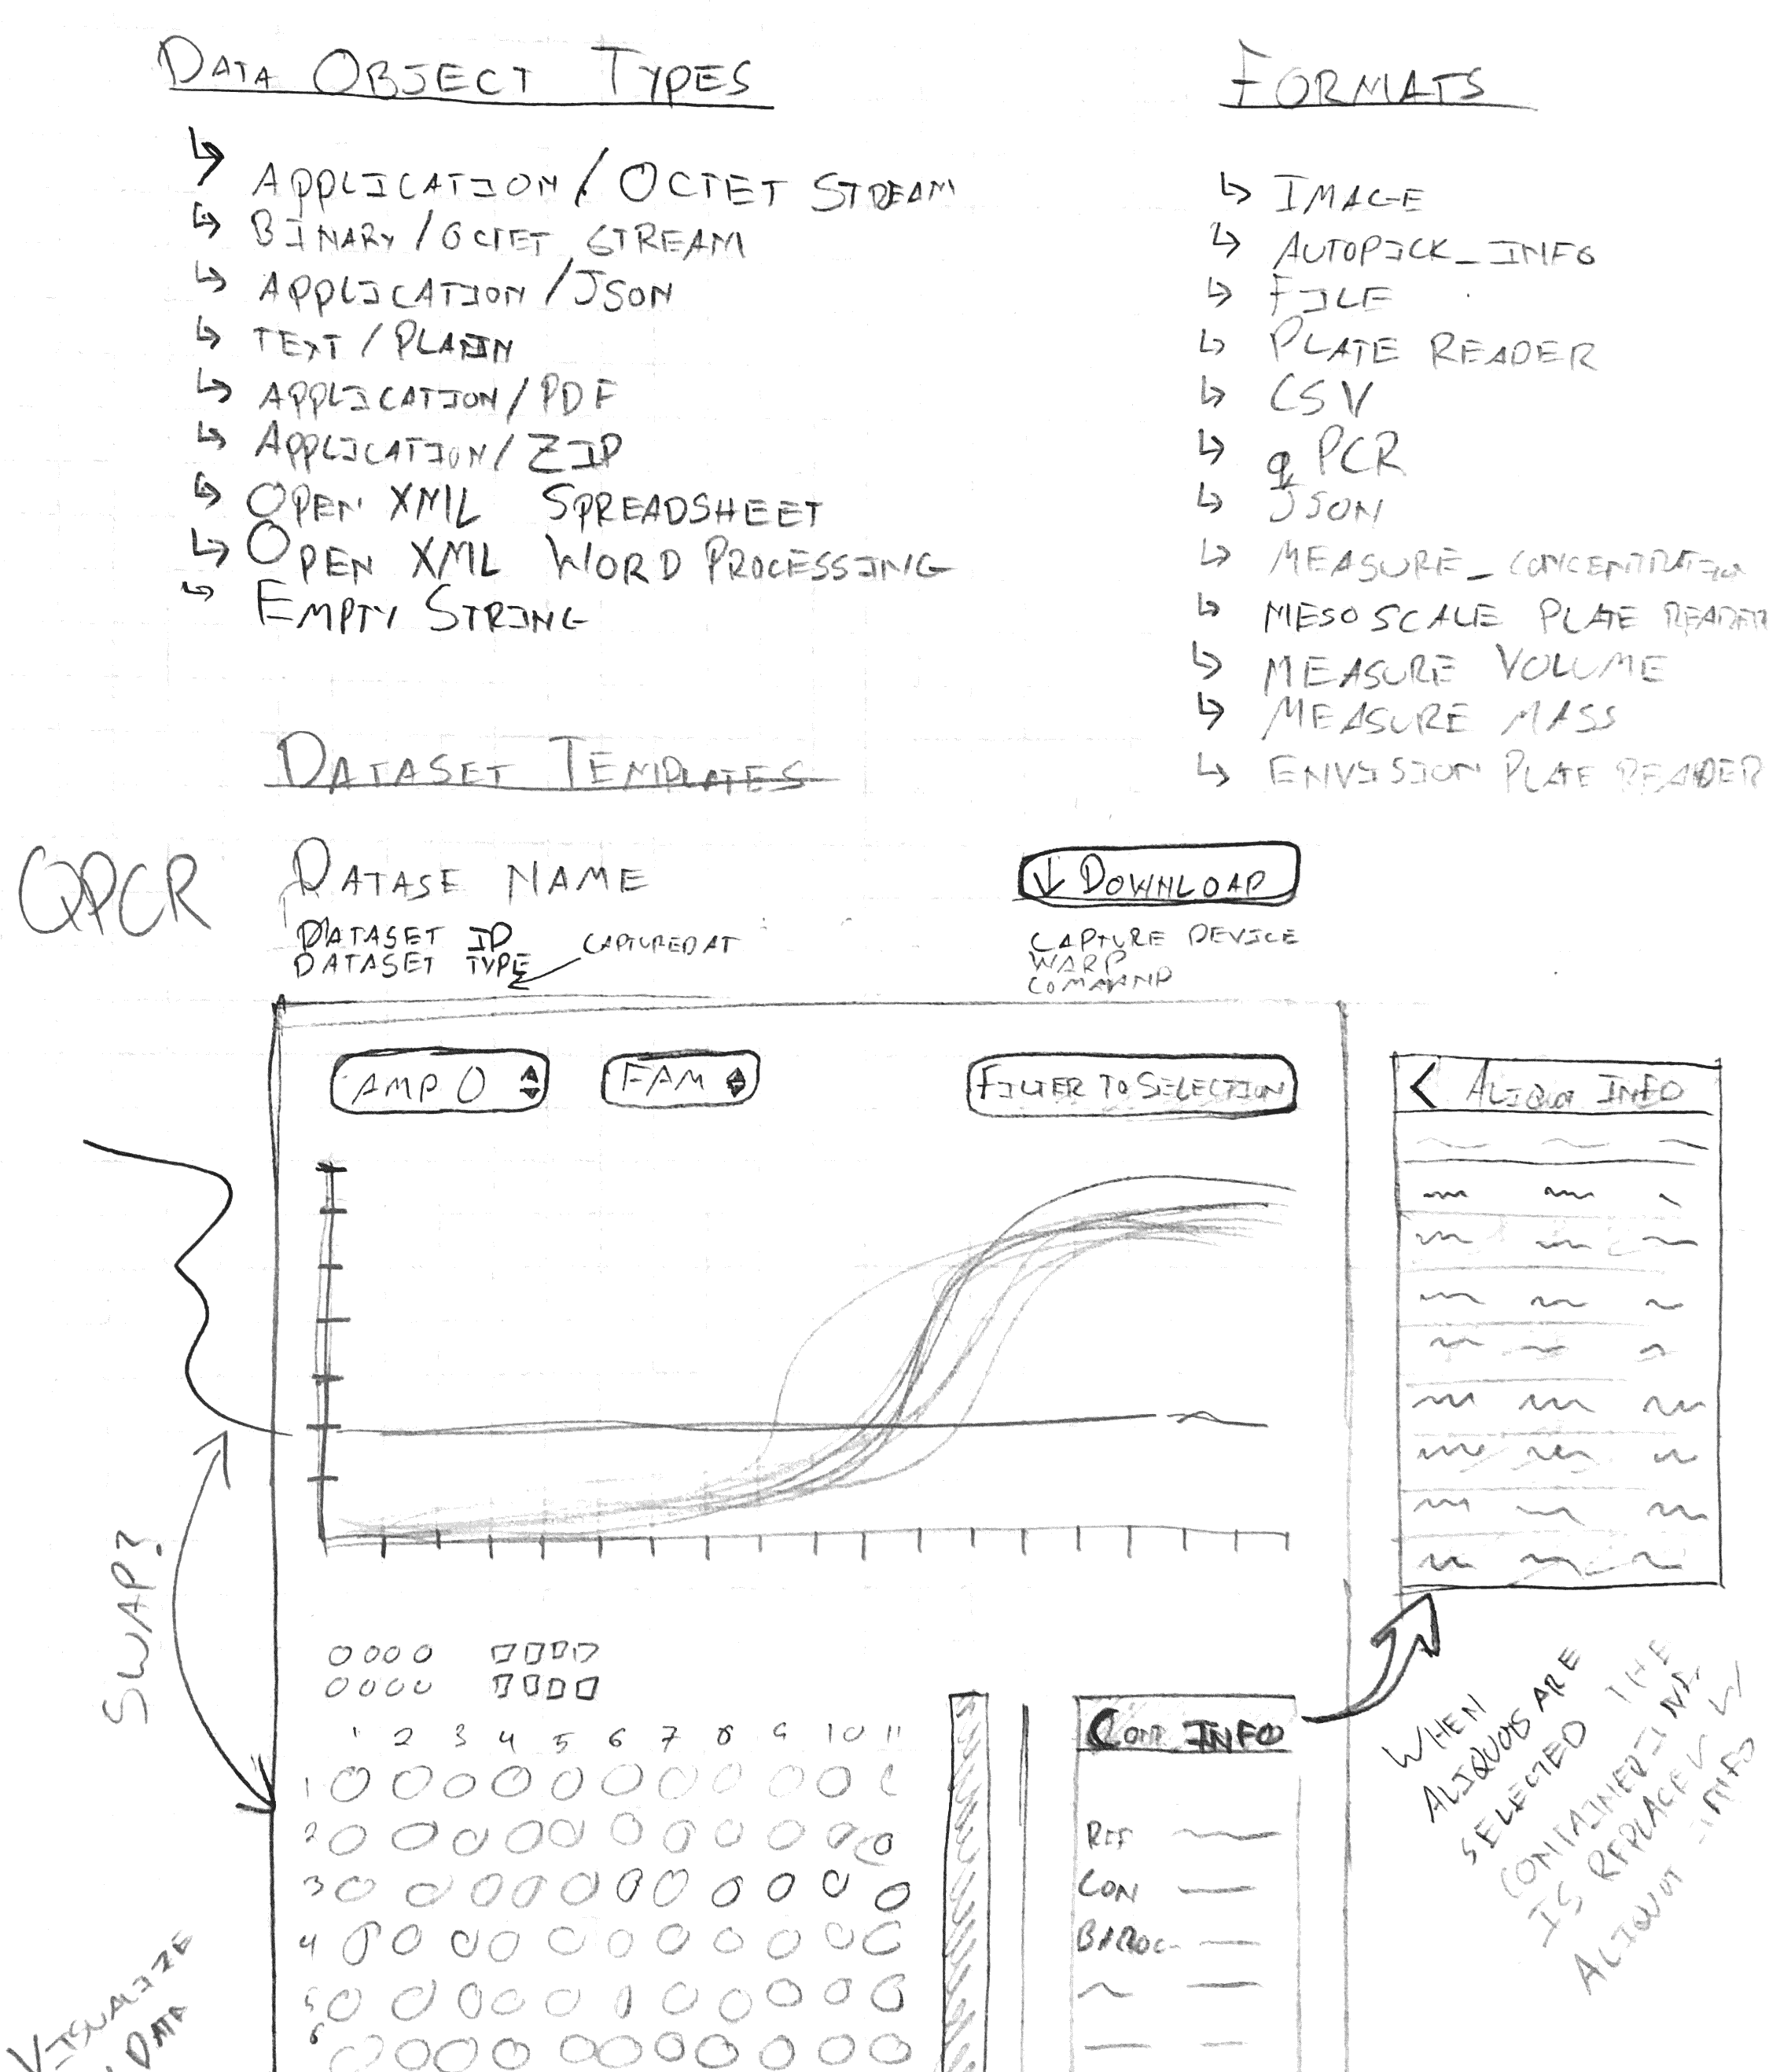 DATA OBJECT TYPES
↳ APPLICATION / OCTET STREAM
↳ BINARY / OCTET STREAM
↳ APPLICATION / JSON
↳ TEXT / PLAIN
↳ APPLICATION / PDF
↳ APPLICATION / ZIP
↳ OPEN XML SPREADSHEET
↳ OPEN XML WORD PROCESSING
↳ EMPTY STRING
FORMATS
↳ IMAGE
↳ AUTOPICK_INFO
↳ FILE
↳ PLATE READER
↳ CSV
↳ qPCR
↳ JSON
↳ MEASURE_CONCENTRATION
↳ MESOSCALE PLATE READER
↳ MEASURE VOLUME
↳ MEASURE MASS
↳ ENVISION PLATE READER
DATASET TEMPLATES
QPCR
DATASE NAME
DATASET ID
DATASET TYPE
CAPTURED AT
↓ DOWNLOAD
CAPTURE DEVICE
WARP
COMMAND
AMP 0
FAM
FILTER TO SELECTION
< ALIQUOT INFO
SWAP?
1 2 3 4 5 6 7 8 9 10 11
1
2
3
4
5
6
INFO
REF
CON
WHEN
ALIQUOTS ARE
SELECTED THE
CONTAINER INFO
IS REPLACED W/
ALIQUOT INFO
VISUALIZE
DATA